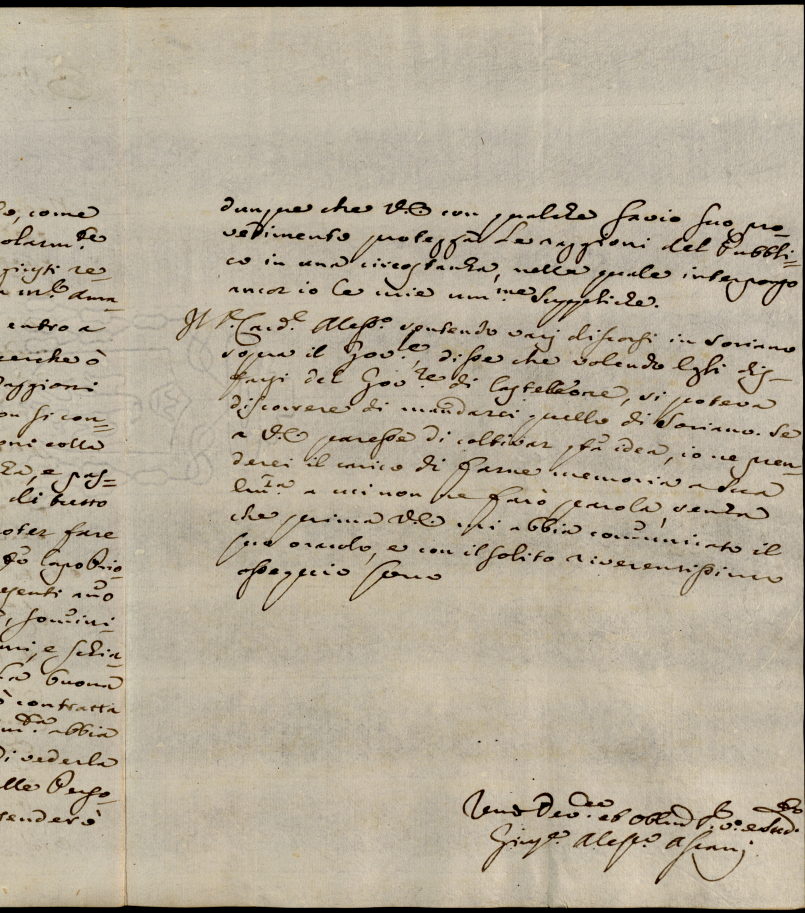 lo, come
olarm.te
giusti re
a m.to dura
entro a
perche ò
Raggioni
on si con
oni colla
za, e pas=
di tutto
oter fare
d.o Capo Prio
esenti
, somini
ni, e schia
la buona
ò contratta
abbia
di vederla
alle Perso
renderò
dunque che V.E. con qualche savio suo pro=
vedimento protegga le raggioni del Pubbli=
co in una circostanza, nella quale interpongo
ancor io le mie um.me suppliche.
Il S.r Card.l Aless.o sentendo varj discorsi in Soriano
sopra il Gov.re, disse che volendo Egli dis=
farsi del Gov.re di Castelleone, si poteva
discorrere di mandarci quello di Soriano. Se
a V.E. paresse di coltivar q.ta idea, io ne pren=
derei il carico di farne memoria a Sua
Em.za a cui non ne farò parola, senza
che prima V.E. mi abbia comunicato il
suo oracolo, e con il solito riverentissimo
ossequio sono
Um.o Dev.mo ed Obblig.mo S.re e Sud.o
Aless.o Ascani